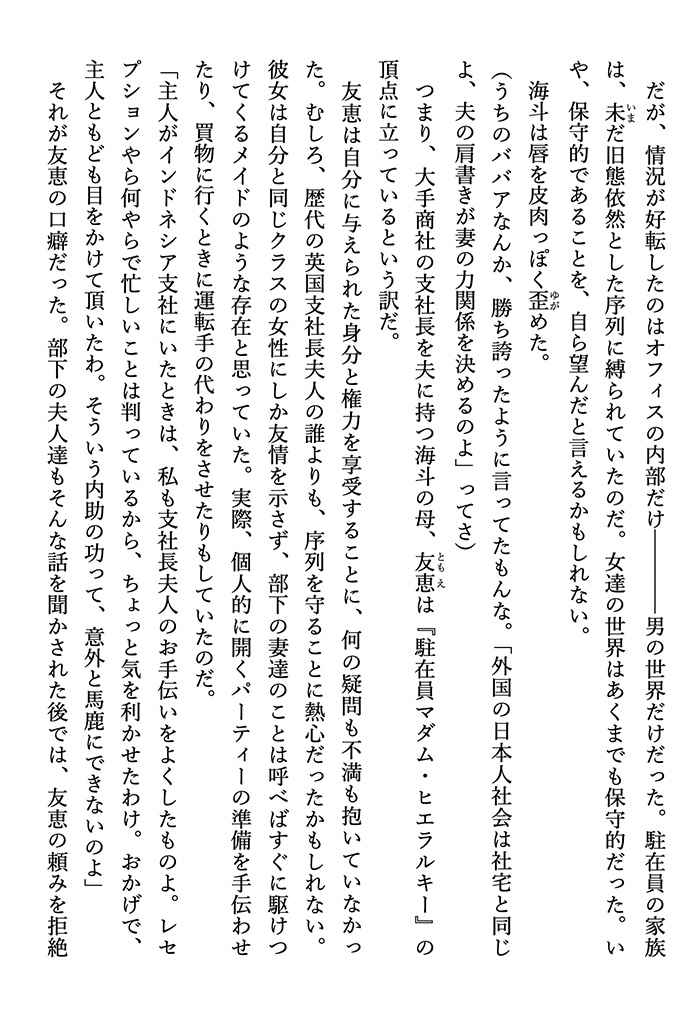 だが、情況が好転したのはオフィスの内部だけ――――男の世界だけだった。駐在員の家族
は、未だ旧態依然とした序列に縛られていたのだ。女達の世界はあくまでも保守的だった。い
や、保守的であることを、自ら望んだと言えるかもしれない。
海斗は唇を皮肉っぽく歪めた。
(うちのババアなんか、勝ち誇ったように言ってたもんな。「外国の日本人社会は社宅と同じ
よ、夫の肩書きが妻の力関係を決めるのよ」ってさ)
つまり、大手商社の支社長を夫に持つ海斗の母、友恵は『駐在員マダム・ヒエラルキー』の
頂点に立っているという訳だ。
友恵は自分に与えられた身分と権力を享受することに、何の疑問も不満も抱いていなかっ
た。むしろ、歴代の英国支社長夫人の誰よりも、序列を守ることに熱心だったかもしれない。
彼女は自分と同じクラスの女性にしか友情を示さず、部下の妻達のことは呼べばすぐに駆けつ
けてくるメイドのような存在と思っていた。実際、個人的に開くパーティーの準備を手伝わせ
たり、買物に行くときに運転手の代わりをさせたりもしていたのだ。
「主人がインドネシア支社にいたときは、私も支社長夫人のお手伝いをよくしたものよ。レセ
プションやら何やらで忙しいことは判っているから、ちょっと気を利かせたわけ。おかげで、
主人ともども目をかけて頂いたわ。そういう内助の功って、意外と馬鹿にできないのよ」
それが友恵の口癖だった。部下の夫人達もそんな話を聞かされた後では、友恵の頼みを拒絶